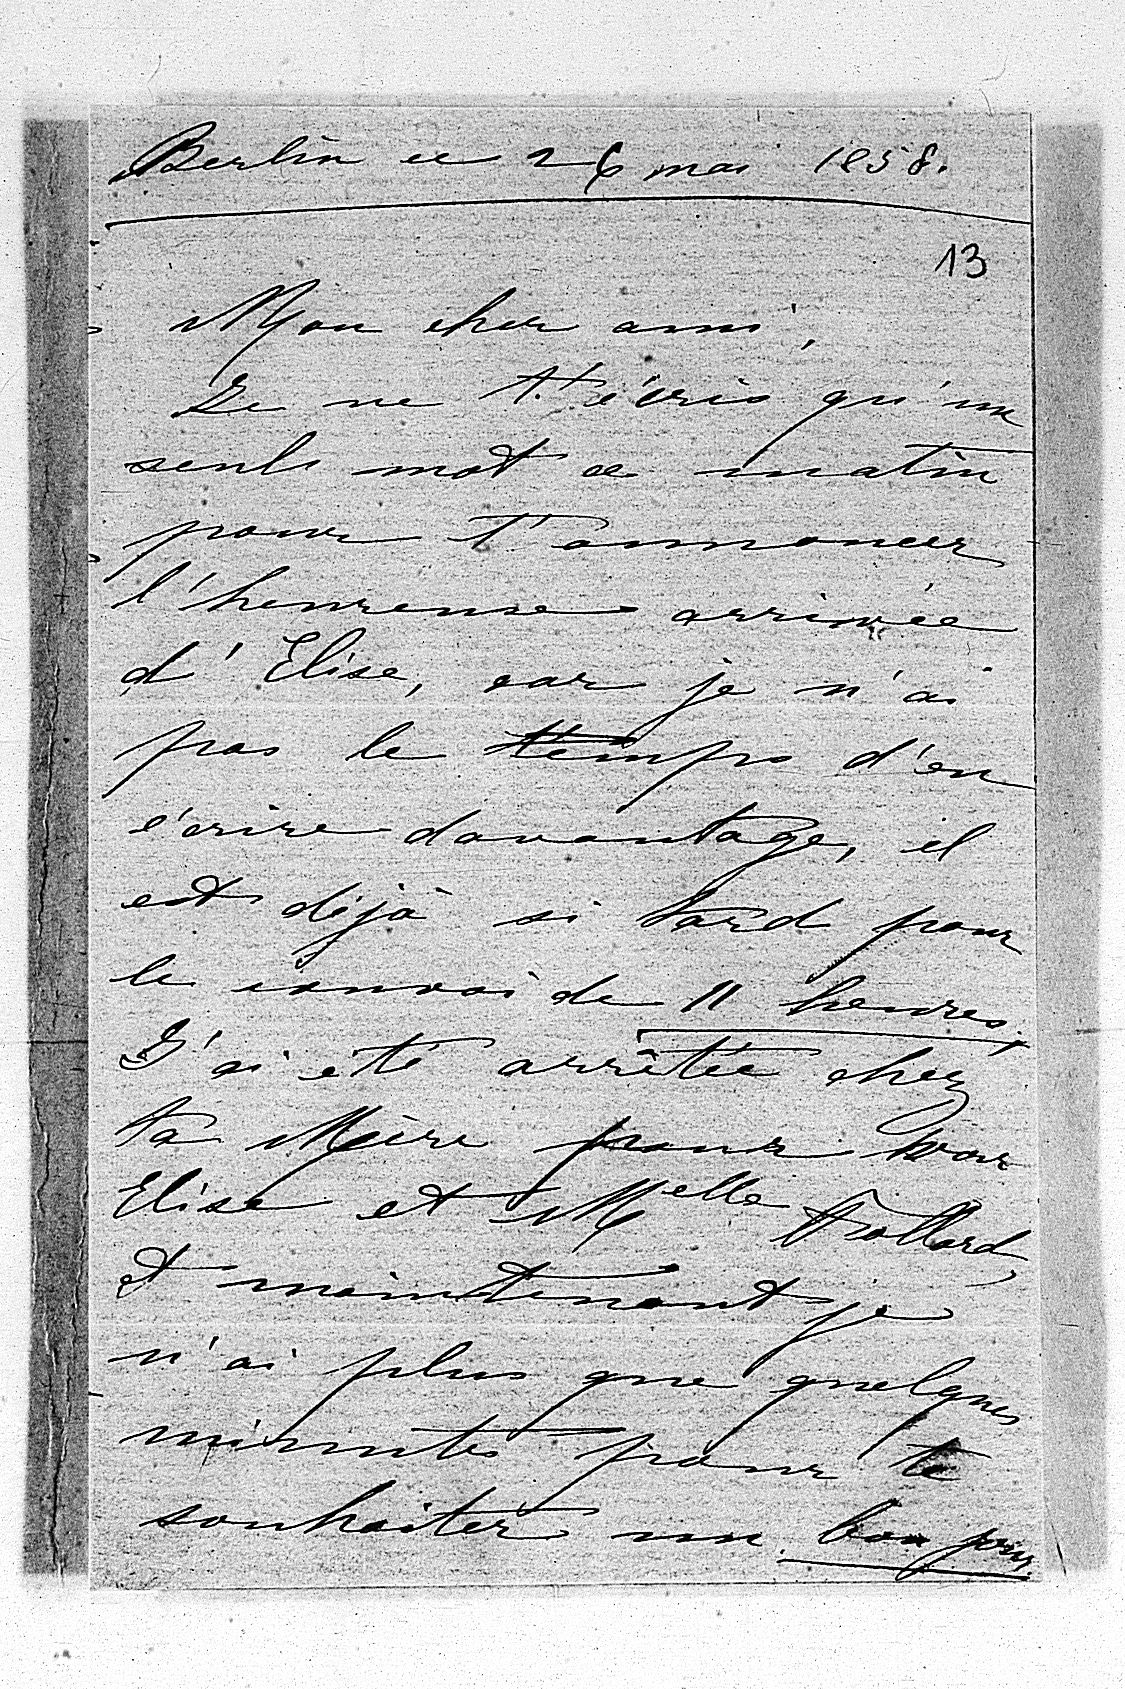 Berlin ce 26 mai 1858.
13
Mon cher ami,
Je ne t'écris qu'un
seul mot ce matin
pour t'annoncer
l'heureuse arrivée
d'Elise, car je n'ai
pas le temps d'en
écrire davantage, il
est déjà si tard pour
le convoi de 11 heures.
J'ai été arrêtée chez
ta Mère pour voir
Elise et Melle Trollard,
et maintenant je
n'ai plus que quelques
minutes pour te
souhaiter un bon jour.